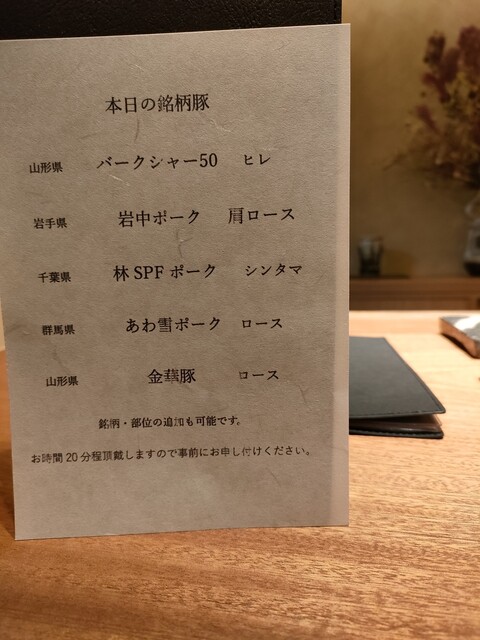 本日の銘柄豚
山形県 バークシャー50 ヒレ
岩手県 岩中ポーク 肩ロース
千葉県 林SPFポーク シンタマ
群馬県 あわ雪ポーク ロース
山形県 金華豚 ロース
銘柄・部位の追加も可能です。
お時間20分程頂戴しますので事前にお申し付けください。